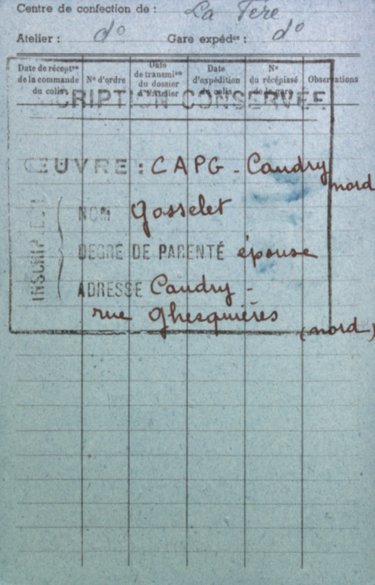 Centre de confection de : La Fère
Atelier : d° Gare expédre : d°
Date de récepton de la commande du colis N° d'ordre Date de transmion du dossier à l'Atelier Date d'expédition du colis N° du récépissé de la gare Observations
CRIPTION CONSERVÉE
ŒUVRE : CAPG - Caudry
nord
INSCRIP
NOM Gosselet
DEGRÉ DE PARENTÉ épouse
ADRESSE Caudry -
rue Ghesquières
(nord)